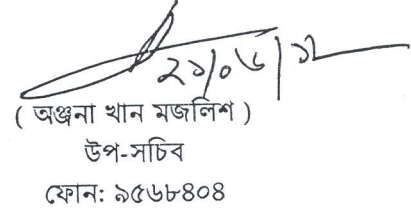 ২১/০৬/১২
( অঞ্জনা খান মজলিশ )
উপ-সচিব
ফোন: ৯৫৬৮৪০৪